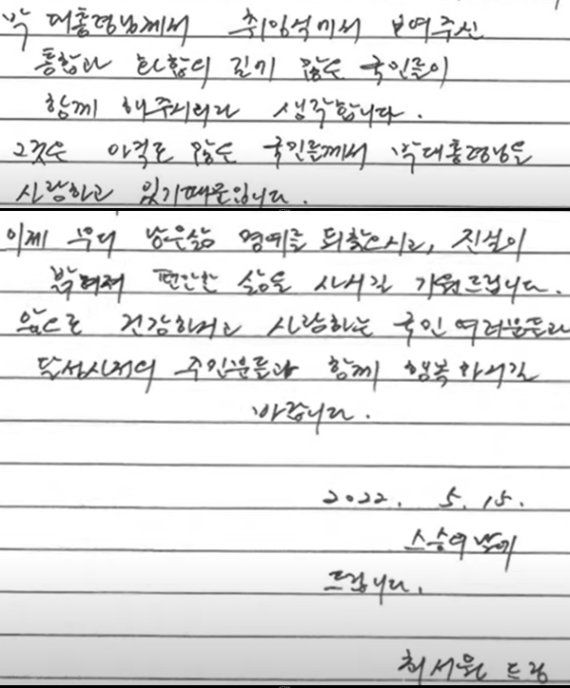 박 대통령님께서 취임식에서 보여주신
통합과 화합의 길에 많은 국민들이
함께 해주시리라 생각합니다.
그것은 아직도 많은 국민들께서 박대통령님을
사랑하고 있기때문입니다.
이제 부디 남은삶 명예를 되찾으시고, 진실이
밝혀져 편안한 삶을 사시길 기원드립니다.
앞으로 건강하시고 사랑하는 국민여러분들과
달성사저의 주민분들과 함께 행복하시길
바랍니다.
2022. 5. 15.
스승의날에
드립니다.
최서원 드림